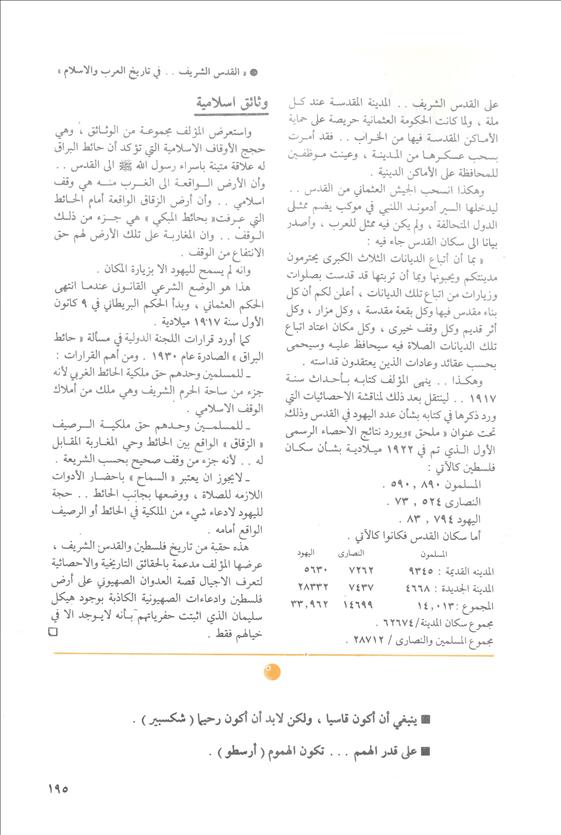 ● « القدس الشريف . . في تاريخ العرب والاسلام »
على القدس الشريف . . المدينة المقدسة عند كل
ملة ، ولما كانت الحكومة العثمانية حريصة على حماية
الأماكن المقدسة فيها من الخراب . . فقد أمرت
بسحب عسكرها من المدينة ، وعينت موظفين
للمحافظة على الأماكن الدينية .
وهكذا انسحب الجيش العثماني من القدس . .
ليدخلها السير أدموند اللنبي في موكب يضم ممثلي
الدول المتحالفة ، ولم يكن فيه ممثل للعرب ، وأصدر
بيانا الى سكان القدس جاء فيه :
« بما أن أتباع الديانات الثلاث الكبرى يحترمون
مدينتكم ويحبونها وبما أن تربتها قد قدست بصلوات
وزيارات من اتباع تلك الديانات ، أعلن لكم أن كل
بناء مقدس فيها وكل بقعة مقدسة ، وكل مزار ، وكل
أثر قديم وكل وقف خيرى ، وكل مكان اعتاد اتباع
تلك الديانات الصلاة فيه سيحافظ عليه وسيحمى
بحسب عقائد وعادات الذين يعتقدون قداسته .
وهكذا . . ينهى المؤلف كتابه بأحداث سنة
١٩١٧ . . لينتقل بعد ذلك لمناقشة الاحصائيات التي
ورد ذكرها في كتابه بشأن عدد اليهود في القدس وذلك
تحت عنوان « ملحق »ويورد نتائج الاحصاء الرسمى
الأول الذي تم في ١٩٢٢ ميلادية بشأن سكان
فلسطين كالآتي :
المسلمون ٨٩٠ , ٥٩٠ .
النصارى ٥٢٤ , ٧٣ .
اليهود ٧٩٤ , ٨٣ .
أما سكان القدس فكانوا كالآتي .
المسلمون النصارى اليهود
المدينه القديمة : ٩٣٤٥ ٧٢٦٢ ٥٦٣٠
المدينة الجديدة : ٤٦٦٨ ٧٤٣٧ ٢٨٣٣٢
المجموع : ١٤,٠١٣ ١٤٦٩٩ ٣٣,٩٦٢
مجموع سكان المدينة/ ٦٢٦٧٤ .
مجموع المسلمين والنصارى / ٢٨٧١٢ .
وثائق اسلامية
واستعرض المؤلف مجموعة من الوثائق ، وهي
حجج الأوقاف الاسلامية التي تؤكد أن حائط البراق
له علاقة متينة باسراء رسول الله ﷺ الى القدس . .
وأن الأرض الواقعة الى الغرب منه هي وقف
اسلامي . . وأن أرض الزقاق الواقعة أمام الحائط
التي عرفت« بحائط المبكي » هي جزء من ذلك
الوقف . . وان المغاربة على تلك الأرض لهم حق
الانتفاع من الوقف .
وانه لم يسمح لليهود الا بزيارة المكان .
هذا هو الوضع الشرعي القانونى عندما انتهى
الحكم العثماني ، وبدأ الحكم البريطاني في ٩ كانون
الأول سنة ١٩١٧ ميلادية .
كما أورد قرارات اللجنة الدولية في مسألة « حائط
البراق » الصادرة عام ١٩٣٠ . ومن أهم القرارات :
ـ للمسلمين وحدهم حق ملكية الحائط الغربي لأنه
جزء من ساحة الحرم الشريف وهي ملك من أملاك
الوقف الاسلامي .
ـ للمسلمين وحدهم حق ملكية الرصيف
« الزقاق » الواقع بين الحائط وحي المغاربة المقابل
له . . لأنه جزء من وقف صحيح بحسب الشريعة .
ـ لايجوز ان يعتبر « السماح » باحضار الأدوات
اللازمه للصلاة ، ووضعها بجانب الحائط . . حجة
لليهود لادعاء شيء من الملكية في الحائط أو الرصيف
الواقع أمامه .
هذه حقبة من تاريخ فلسطين والقدس الشريف ،
عرضها المؤلف مدعمة بالحقائق التاريخية والاحصائية
لتعرف الاجيال قصة العدوان الصهيوني على أرض
فلسطين وادعاءات الصهيونية الكاذبة بوجود هيكل
سليمان الذي اثبتت حفرياتهم بأنه لايوجد الا في
خيالهم فقط .
■ ينبغي أن أكون قاسيا ، ولكن لابد أن أكون رحيما ( شكسبير ) .
■ على قدر الهمم . . . تكون الهموم ( أرسطو ) .
١٩٥